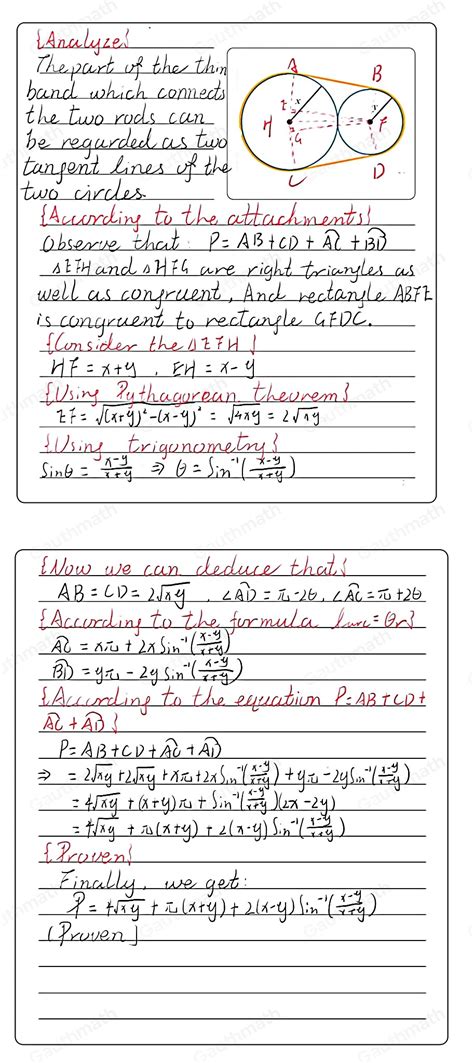 {Analyze}
The part of the thin
band which connects
the two rods can
be regarded as two
tangent lines of the
two circles.
A
B
E
x
x
H
F
G
C
D
{According to the attachments}
Observe that: P=AB+CD+A͡C+B͡D
△EFH and △HFG are right triangles as
well as congruent, And rectangle ABFE
is congruent to rectangle GFDC.
{Consider the △EFH}
HF = x+y , EH = x-y
{Using Pythagorean theorem}
EF= √((x+y)²-(x-y)²) = √4xy = 2√xy
{Using trigonometry}
Sinθ = (x-y)/(x+y) ⇒ θ = Sin⁻¹((x-y)/(x+y))
{Now we can deduce that}
AB = CD = 2√xy , ∠A͡D = π-2θ, ∠A͡C = π+2θ
{According to the formula larc=θr}
A͡C = xπ + 2xSin⁻¹((x-y)/(x+y))
B͡D = yπ - 2ySin⁻¹((x-y)/(x+y))
{According to the equation P=AB+CD+
A͡C+A͡D}
P=AB+CD+A͡C+A͡D
⇒ = 2√xy+2√xy+xπ+2xSin⁻¹((x-y)/(x+y))+yπ-2ySin⁻¹((x-y)/(x+y))
= 4√xy + (x+y)π + Sin⁻¹((x-y)/(x+y))(2x-2y)
= 4√xy + π(x+y) + 2(x-y)Sin⁻¹((x-y)/(x+y))
{Proven}
Finally, we get:
P = 4√xy + π(x+y) + 2(x-y)Sin⁻¹((x-y)/(x+y))
[Proven]